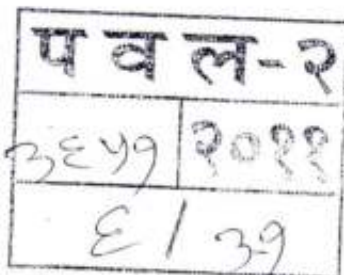 प व ल-२
३६५१ २०११
६ / ३१